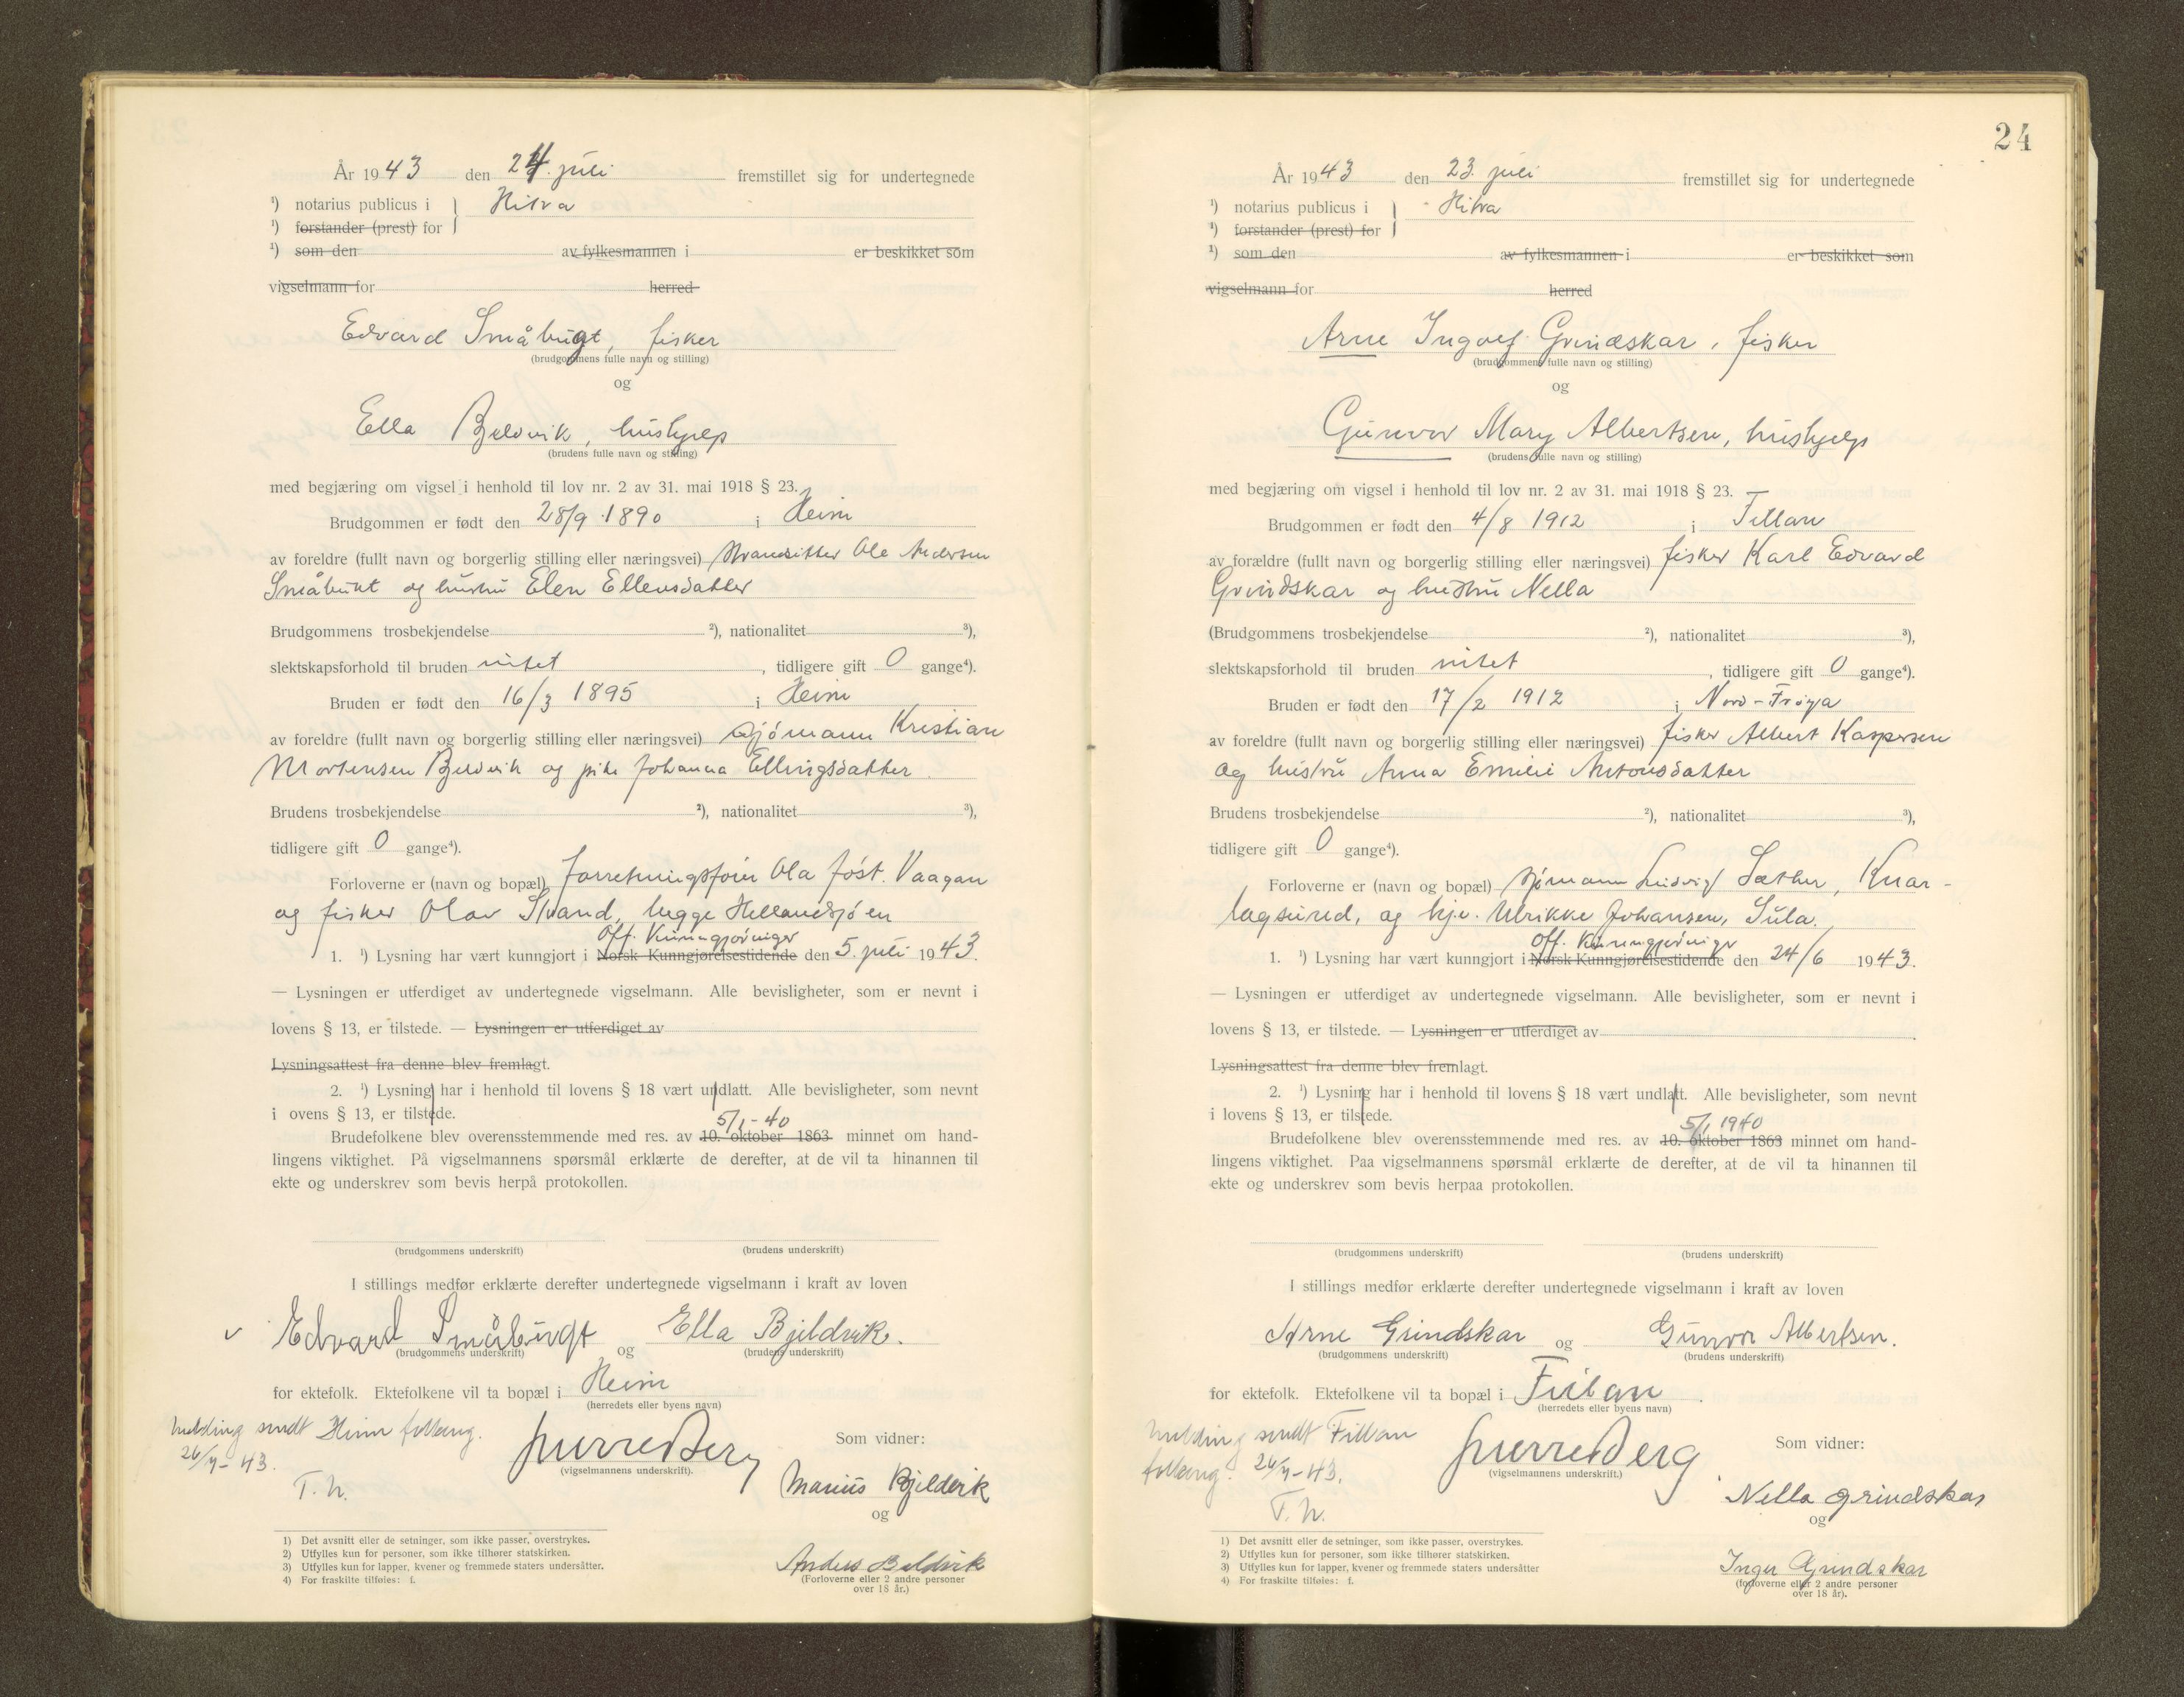 År 1943 den 24. juli fremstillet sig for undertegnede
¹) notarius publicus i Hitra
¹) forstander (prest) for
¹) som den av fylkesmannen i er beskikket som
vigselmann for herred
Edvard Småbugt, fisker
(brudgommens fulle navn og stilling)
og
Ella Bjeldvik, hushjelp
(brudens fulle navn og stilling)
med begjæring om vigsel i henhold til lov nr. 2 av 31. mai 1918 § 23.
Brudgommen er født den 28/9 1890 i Heim
av foreldre (fullt navn og borgerlig stilling eller næringsvei) Strandsitter Ole Andersen
Småbukt og hustru Elen Ellensdatter
Brudgommens trosbekjendelse ²), nationalitet ³),
slektskapsforhold til bruden intet, tidligere gift 0 gange⁴).
Bruden er født den 16/3 1895 i Heim
av foreldre (fullt navn og borgerlig stilling eller næringsvei) sjømann Kristian
Mortensen Bjeldvik og pike Johanna Ellingsdatter
Brudens trosbekjendelse ²), nationalitet ³),
tidligere gift 0 gange⁴).
Forloverne er (navn og bopæl) forretningsfører Ola Jøst. Vaagan
og fisker Olav Strand, begge Hellandsjøen
Off. Kunngjøringer
1. ¹) Lysning har vært kunngjort i Norsk Kunngjørelsestidende den 5. juli 1943.
— Lysningen er utferdiget av undertegnede vigselmann. Alle bevisligheter, som er nevnt i
lovens § 13, er tilstede. — Lysningen er utferdiget av
Lysningsattest fra denne blev fremlagt.
2. ¹) Lysning har i henhold til lovens § 18 vært undlatt. Alle bevisligheter, som nevnt
i ovens § 13, er tilstede.
5/1-40
Brudefolkene blev overensstemmende med res. av 10. oktober 1863 minnet om hand-
lingens viktighet. På vigselmannens spørsmål erklærte de derefter, at de vil ta hinannen til
ekte og underskrev som bevis herpå protokollen.
(brudgommens underskrift) (brudens underskrift)
I stillings medfør erklærte derefter undertegnede vigselmann i kraft av loven
Edvard Småbugt og Ella Bjeldvik.
(brudgommens underskrift) (brudens underskrift)
for ektefolk. Ektefolkene vil ta bopæl i Heim
(herredets eller byens navn)
Melding sendt Heim folkereg.
26/7-43.
T. N.
(vigselmannens underskrift).
Som vidner:
Marius Bjeldvik
og
Anders Bjeldvik
(Forloverne eller 2 andre personer
over 18 år.)
1) Det avsnitt eller de setninger, som ikke passer, overstrykes.
2) Utfylles kun for personer, som ikke tilhører statskirken.
3) Utfylles kun for lapper, kvener og fremmede staters undersåtter.
4) For fraskilte tilføies: f.
24
År 1943 den 23. juli fremstillet sig for undertegnede
¹) notarius publicus i Hitra
¹) forstander (prest) for
¹) som den av fylkesmannen i er beskikket som
vigselmann for herred
Arne Ingolf Grindskar, fisker
(brudgommens fulle navn og stilling)
og
Gunvor Mary Albertsen, hushjelp
(brudens fulle navn og stilling)
med begjæring om vigsel i henhold til lov nr. 2 av 31. mai 1918 § 23.
Brudgommen er født den 4/8 1912 i Fillan
av forældre (fullt navn og borgerlig stilling eller næringsvei) fisker Karl Edvard
Grindskar og hustru Nella
(Brudgommens trosbekjendelse ²), nationalitet ³),
slektskapsforhold til bruden intet, tidligere gift 0 gange⁴).
Bruden er født den 17/2 1912 i Nord-Frøya
av foreldre (fullt navn og borgerlig stilling eller næringsvei) fisker Albert Kaspersen
og hustru Anna Emilie Antonsdatter
Brudens trosbekjendelse ²), nationalitet ³),
tidligere gift 0 gange⁴).
Forloverne er (navn og bopæl) sjømann Ludvig Sæther, Knar-
lagsund, og hj.e. Ulrikke Johansen, Sula.
Off. Kunngjøringer
1. ¹) Lysning har vært kunngjort i Norsk Kunngjørelsestidende den 24/6 1943.
— Lysningen er utferdiget av undertegnede vigselmann. Alle bevisligheter, som er nevnt i
lovens § 13, er tilstede. — Lysningen er utferdiget av
Lysningsattest fra denne blev fremlagt.
2. ¹) Lysning har i henhold til lovens § 18 vært undlatt. Alle bevisligheter, som nevnt
i lovens § 13, er tilstede.
5/1 1940
Brudefolkene blev overensstemmende med res. av 10. oktober 1863 minnet om hand-
lingens viktighet. Paa vigselmannens spørsmål erklærte de derefter, at de vil ta hinannen til
ekte og underskrev som bevis herpaa protokollen.
(brudgommens underskrift) (brudens underskrift)
I stillings medfør erklærte derefter undertegnede vigselmann i kraft av loven
Arne Grindskar og Gunvor Albertsen.
(brudgommens underskrift) (brudens underskrift)
for ektefolk. Ektefolkene vil ta bopæl i Fillan.
(herredets eller byens navn)
Melding sendt Fillan
folkereg. 26/7-43.
T. N.
(vigselmannens underskrift.)
Som vidner:
Nella Grindskar
og
Inger Grindskar
(forloverne eller 2 andre personer
over 18 år).
1) Det avsnitt eller de setninger, som ikke passer, overstrykes.
2) Utfylles kun for personer, som ikke tilhører statskirken.
3) Utfylles kun for lapper, kvener og fremmede staters undersåtter
4) For fraskilte tilføies: f.